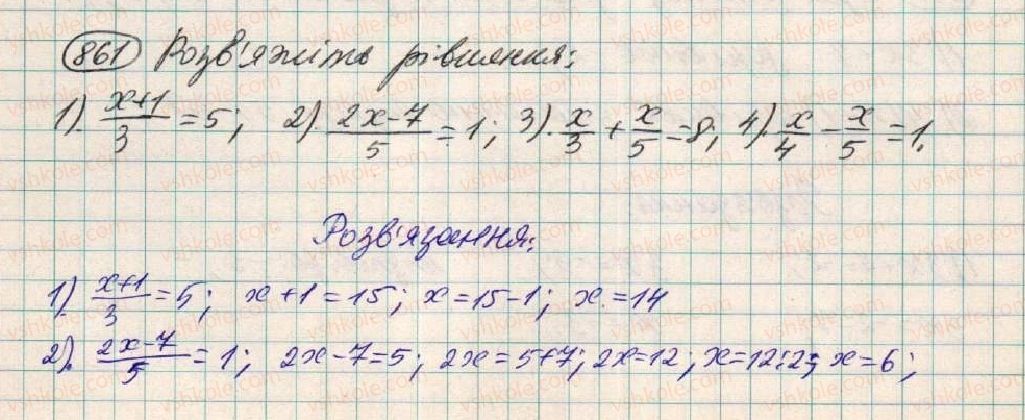 861 Розв'яжіть рівняння:
1). (x+1)/3 = 5; 2). (2x-7)/5 = 1; 3). x/3 + x/5 = 8; 4). x/4 - x/5 = 1.
Розв'язання:
1). (x+1)/3 = 5; x+1=15; x=15-1; x=14
2). (2x-7)/5 = 1; 2x-7=5; 2x=5+7; 2x=12; x=12:2; x=6;